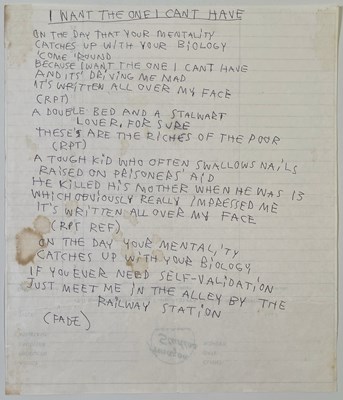 I WANT THE ONE I CANT HAVE
ON THE DAY THAT YOUR MENTALITY
CATCHES UP WITH YOUR BIOLOGY
'COME 'ROUND
BECAUSE I WANT THE ONE I CANT HAVE
AND ITS' DRIVING ME MAD
IT'S WRITTEN ALL OVER MY FACE
(RPT)
A DOUBLE BED AND A STALWART
LOVER, FOR SURE
THESE'S ARE THE RICHES OF THE POOR
(RPT)
A TOUGH KID WHO OFTEN SWALLOWS NAILS
RAISED ON PRISONERS' AID
HE KILLED HIS MOTHER WHEN HE WAS 13
WHICH OBVIOUSLY REALLY IMPRESSED ME
IT'S WRITTEN ALL OVER MY FACE
(RPT REF)
ON THE DAY YOUR MENTALITY
CATCHES UP WITH YOUR BIOLOGY
IF YOU EVER NEED SELF-VALIDATION
JUST MEET ME IN THE ALLEY BY THE
RAILWAY STATION
(FADE)